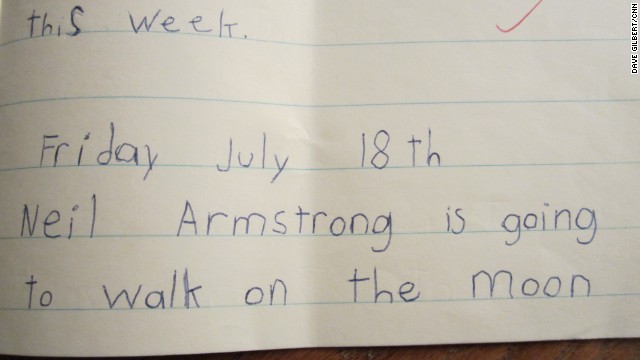 this week.
DAVE GILBERT/CNN
Friday July 18th
Neil Armstrong is going
to walk on the moon